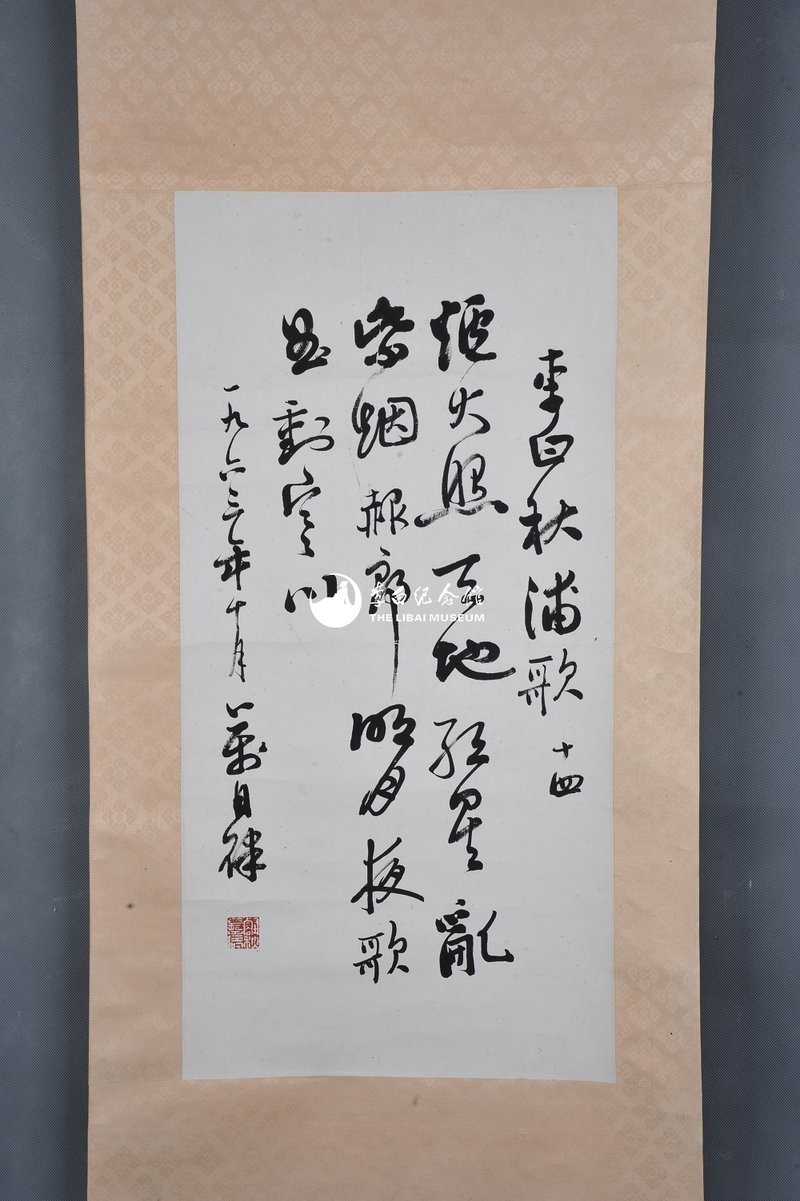 李白秋浦歌 十四
炉火照天地红星亂
紫烟赧郎明月夜歌
曲動寒川
一九六三年十月
李白纪念馆
THE LIBAI MUSEUM